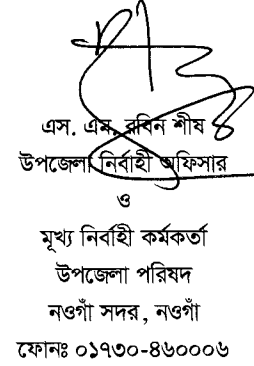 এস. এম. রবিন শীষ
উপজেলা নির্বাহী অফিসার
ও
মূখ্য নির্বাহী কর্মকর্তা
উপজেলা পরিষদ
নওগাঁ সদর, নওগাঁ
ফোনঃ ০১৭৩০-৪৬০০০৬